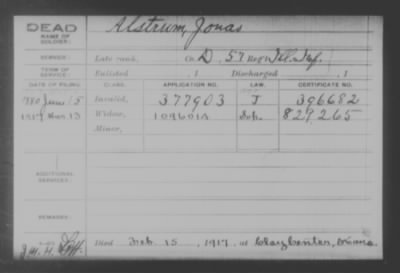 DEAD Alstrum, Jonas
NAME OF SOLDIER:
SERVICE: Late rank, Co. D, 57 Reg't Ill. Inf.
TERM OF SERVICE: Enlisted , 1 Discharged , 1
DATE OF FILING. CLASS. APPLICATION NO. LAW. CERTIFICATE NO.
1880 June 15 Invalid, 377903 J 396682
1917 Mar. 13 Widow, 1096012 829,265
Minor,
ADDITIONAL SERVICES:
REMARKS:
Died Feb. 15, 1917, at Clay Center, Kans.